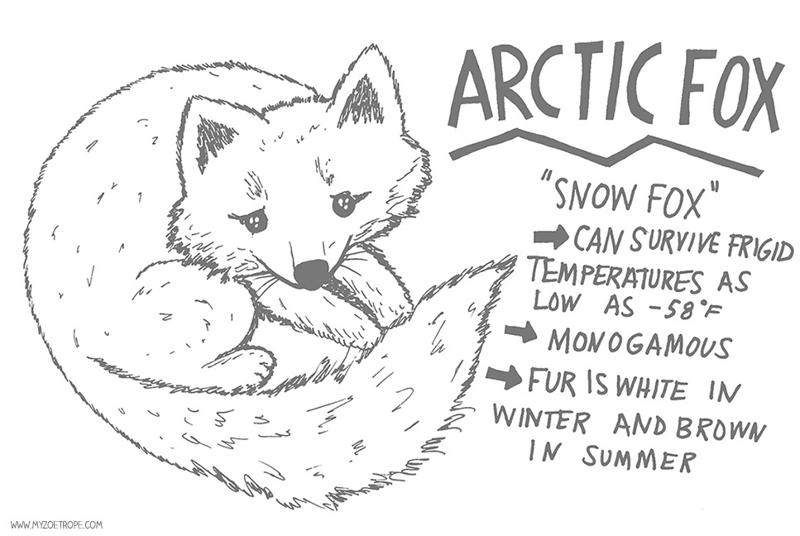 ARCTIC FOX
"SNOW FOX"
➡ CAN SURVIVE FRIGID
TEMPERATURES AS
LOW AS -58°F
➡ MONOGAMOUS
➡ FUR IS WHITE IN
WINTER AND BROWN
IN SUMMER
WWW.MYZOETROPE.COM